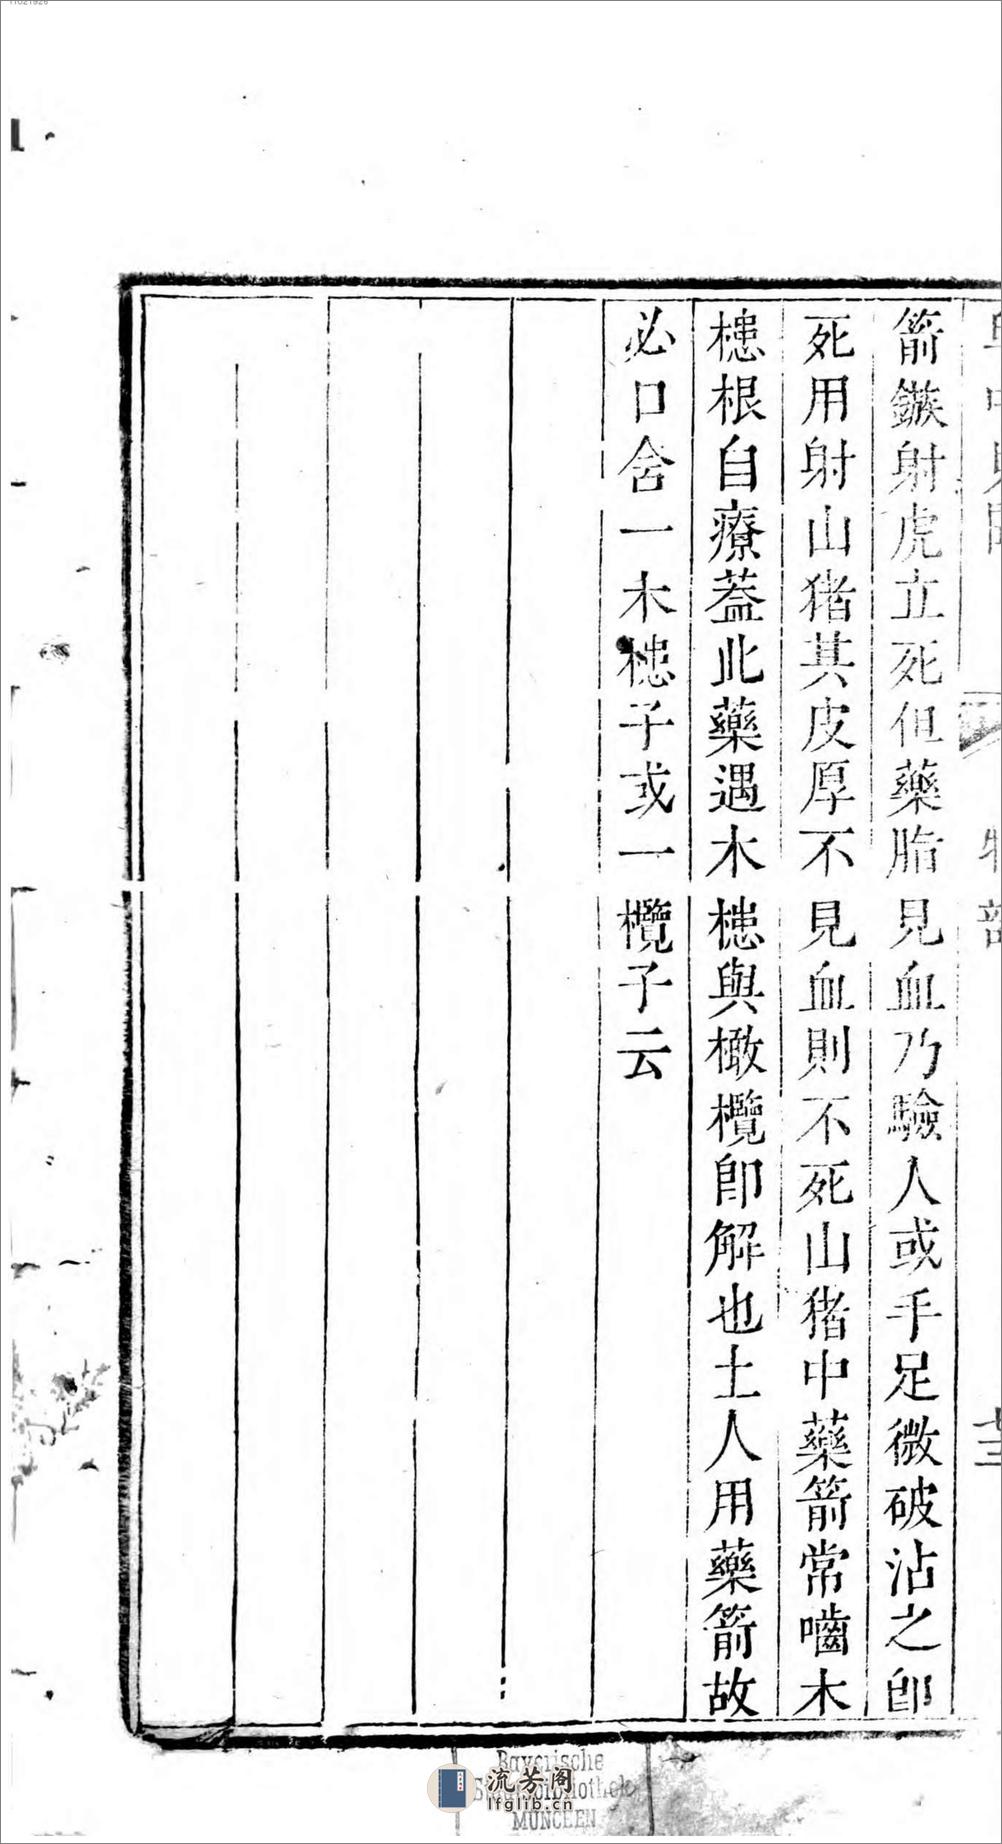 箭鏃射虎立死但藥脂見血乃驗人或手足微破沾之卽
死用射山猪其皮厚不見血則不死山猪中藥箭常嚙木
槵根自療蓋此藥遇木槵與橄欖卽解也土人用藥箭故
必口含一木槵子或一欖子云
物部
七三
11021926
Bayerische
Staatsbibliothek
MÜNCHEN
流芳阁
lfglib.cn